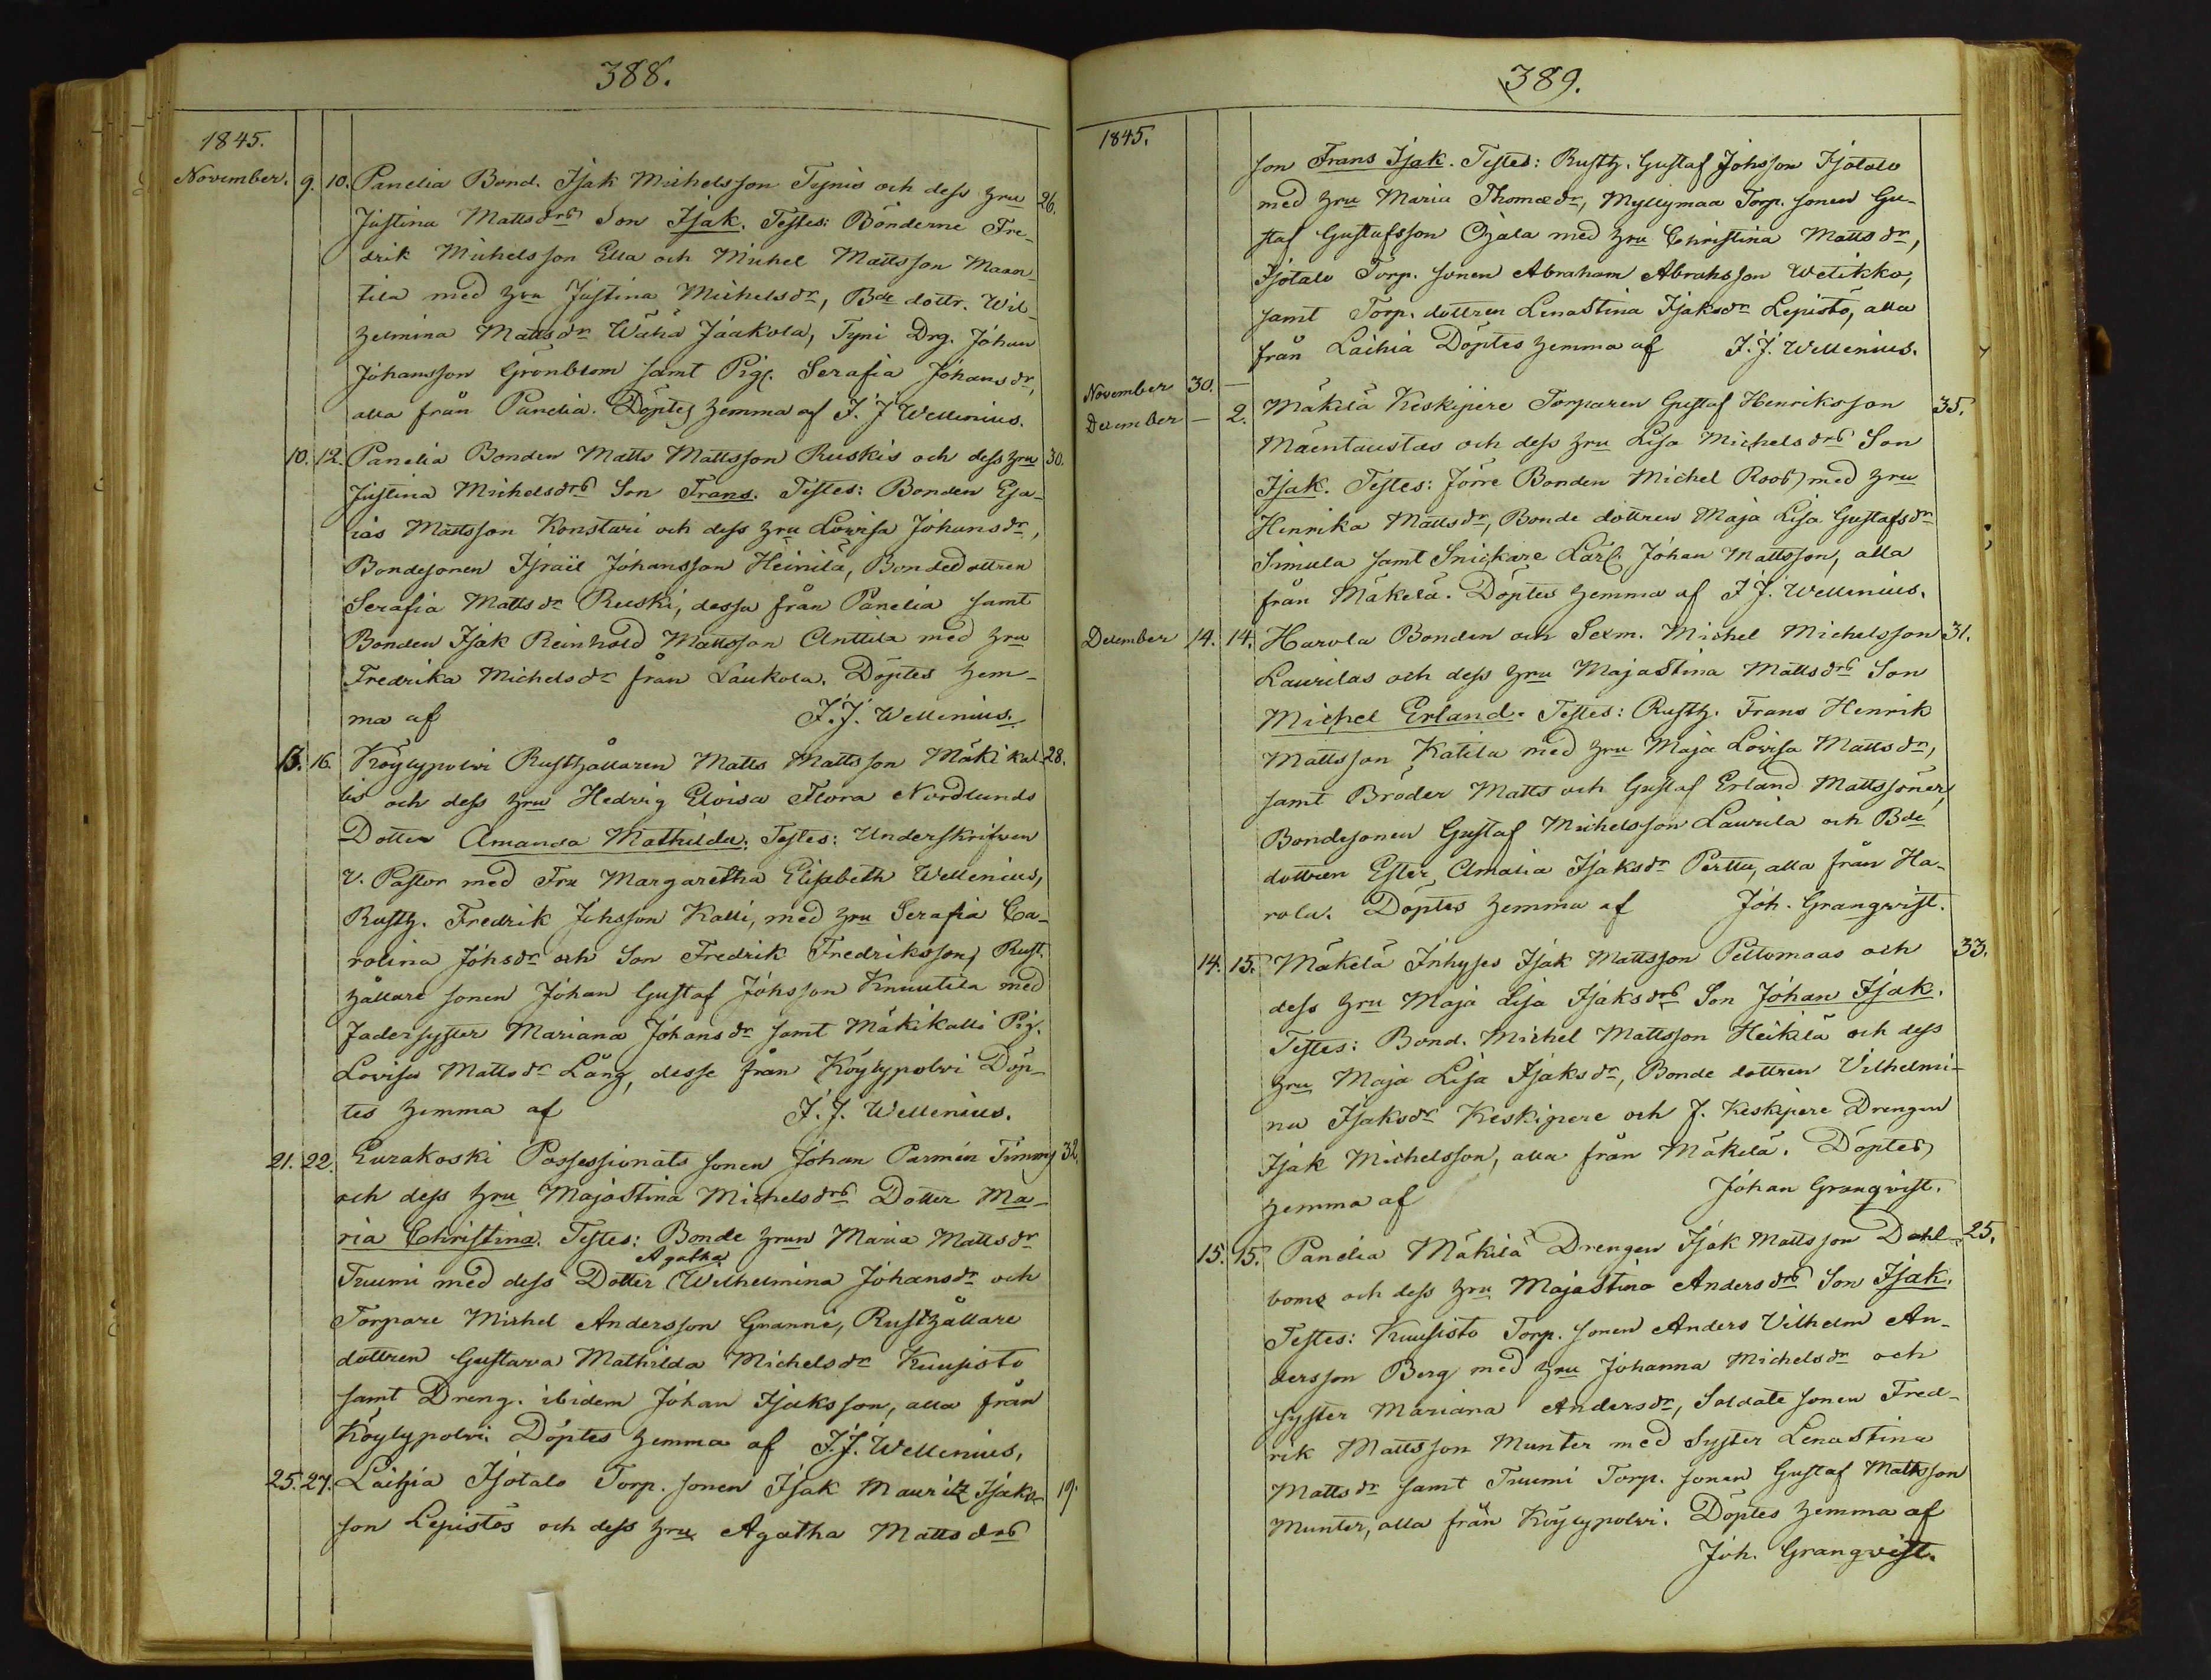 388.
1845.
November. 9. 10. Panelia Bond. Isak Michelsson Tynis och dess hru 26.
Justina Mattsdrs Son Isak. Testes: Bönderne Fre-
drik Michelsson Ella och Michel Mattsson Maan-
tila med hru Justina Michelsdr, Bde dottr. Wil-
helmina Mattsdr Wähä Jaakola, Tyni Drg. Johan
Johansson Grönblom samt Pig. Serafia Johansdr,
alla från Panelia. Döptes hemma af J. J. Wellenius.
10. 12. Panelia Bonden Matts Mattsson Ruskis och dess hru 30.
Justina Michelsdrs Son Frans. Testes: Bonden Esa-
ias Mattsson Konstari och dess hru Lowisa Johansdr,
Bondesonen Israël Johansson Heinilä, Bondedottren
Serafia Mattsdr Ruski, dessa från Panelia samt
Bonden Isak Reinhold Mattsson Anttila med hru
Fredrika Michelsdr från Laukola. Döptes hem-
ma af J. J. Wellenius.
15. 16. Köylypolvi Rusthållaren Matts Mattsson Mäkikal- 28.
lis och dess hru Hedvig Eloisa Flora Nordlunds
Dotter Amanda Mathilda. Testes: Underskrifven
V. Pastor med Fru Margaretha Elisabeth Wellenius,
Rusth. Fredrik Johsson Kalli, med hru Serafia Ca-
rolina Johsdr och Son Fredrik Fredriksson, Rust-
hållare sonen Johan Gustaf Johsson Knuutila med
Fadersyster Mariana Johansdr samt Mäkikalli Pig.
Lovisa Mattsdr Lång, desse från Köylypolvi Döp-
tes hemma af J. J. Wellenius.
21. 22. Eurakoski Possessionats sonen Johan Parmén Timmy 32.
och dess hru Majastina Michelsdrs Dotter Ma-
ria Christina. Testes: Bonde hrun Maria Mattsdr
Agatha
Truumi med dess Dotter Wilhelmina Johansdr och
Torpare Michel Andersson Granni, Rusthållare
dottren Gustava Mathilda Michelsdr Kuusisto
samt Dreng. ibidem Johan Isaksson, alla från
Köylypolvi. Döptes hemma af J. J. Wellenius.
25. 27. Laihia Isotalo Torp. sonen Isak Mauritz Isaks- 19.
son Lepistös och dess hru Agatha Mattsdrs
389.
1845.
son Frans Isak. Testes: Rusth. Gustaf Johsson Isotalo
med hru Maria Thomædr, Myllymaa Torp. sonen Gu-
staf Gustafsson Ojala med hru Christina Mattsdr,
Isotalo Torp. sonen Abraham Abrahsson Wetikko,
samt Torp. dottren Lenastina Isaksdr Lepistö, alla
från Laihia Döptes hemma af J. J. Wellenius.
November 30. —
December — 2. Mäkelä Keskipere Torparen Gustaf Henriksson 35.
Mäentaustas och dess hru Lisa Michelsdrs Son
Isak. Testes: förre Bonden Michel Roos med hru
Henrika Mattsdr, Bonde dottren Maja Lisa Gustafsdr
Simula samt Snickare Lärl. Johan Mattsson, alla
från Mäkelä. Döptes hemma af J. J. Wellenius.
December 14. 14. Harola Bonden och Sexm. Michel Michelsson 31.
Laurilas och dess hru Majastina Mattsdrs Son
Michel Erland. Testes: Rusth. Frans Henrik
Mattsson Katila med hru Maja Lovisa Mattsdr,
samt Bröder Matts och Gustaf Erland Mattssöner,
Bondesonen Gustaf Michelsson Laurila och Bde
dottren Ester Amalia Isaksdr Perttu, alla från Ha-
rola. Döptes hemma af Joh. Granqvist.
14. 15. Mäkelä Inhyses Isak Mattsson Peltomaas och 33.
dess hru Maja Lisa Isaksdrs Son Johan Isak.
Testes: Bond. Michel Mattsson Heikilä och dess
hru Maja Lisa Isaksdr, Bonde dottren Vilhelmi-
na Isaksdr Keskipere och J. Keskipere Drengen
Isak Michelsson, alla från Mäkelä. Döptes
hemma af Johan Granqvist.
15. 15. Panelia Mäkilä Drengen Isak Mattsson Dahl- 25.
boms och dess hru Majastina Andersdrs Son Isak.
Testes: Kuusisto Torp. sonen Anders Vilhelm An-
dersson Berg med hru Johanna Michelsdr och
syster Mariana Andersdr, Soldate sonen Fred-
rik Mattsson Munter med Syster Lenastina
Mattsdr samt Truumi Torp. sonen Gustaf Mattsson
Munter, alla från Köylypolvi. Döptes hemma af
Joh. Granqvist.